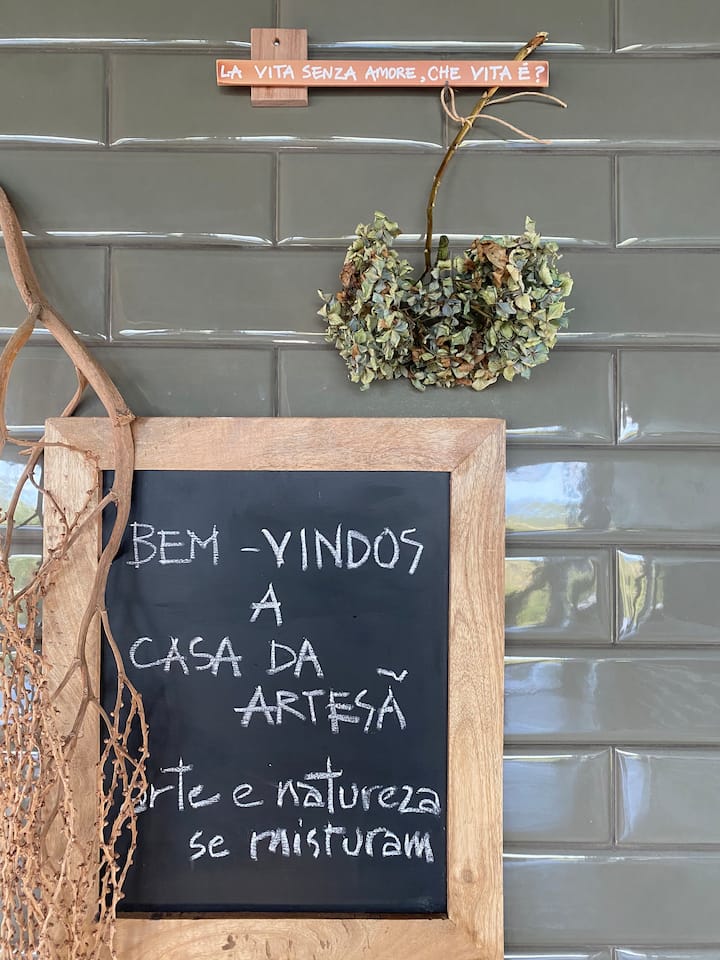 LA VITA SENZA AMORE, CHE VITA È?
BEM-VINDOS
A
CASA DA
ARTESÃ
arte e natureza
se misturam